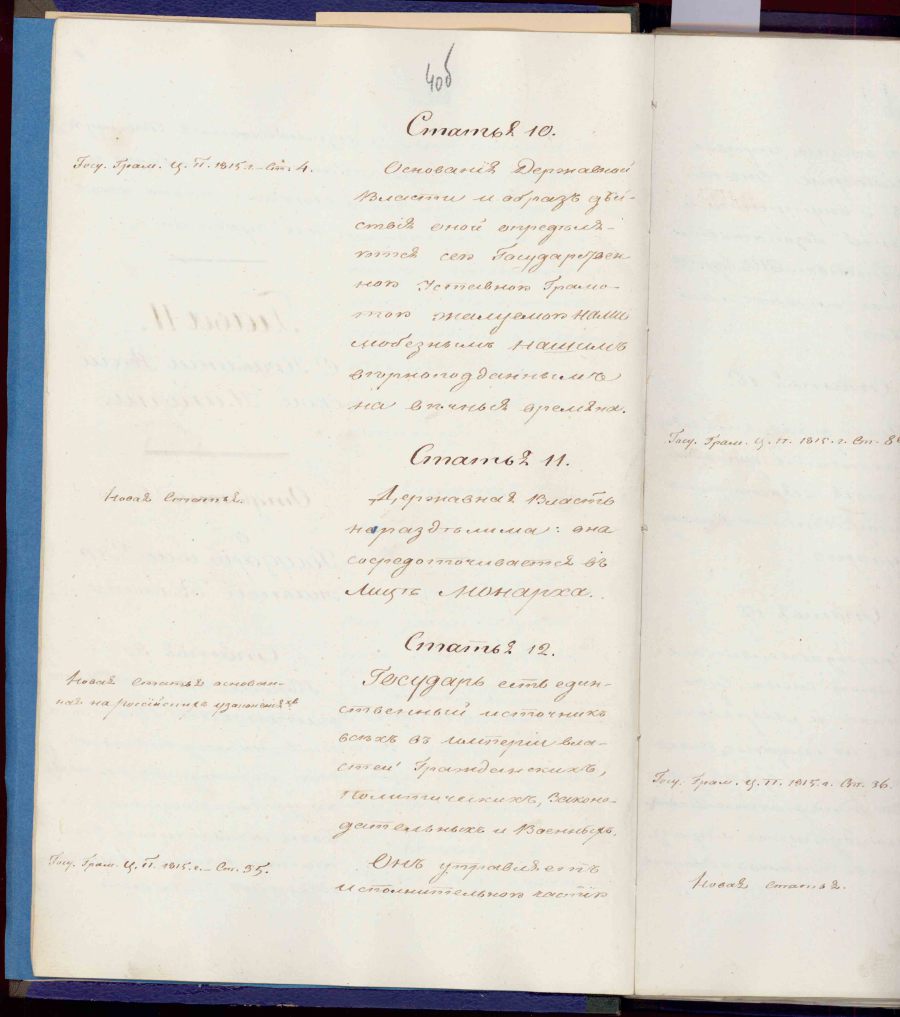 40б
Статья 10.
Госу. Грам. Ц. П. 1815 г. Ст. 4.
Основанія Державной
Власти и образъ дѣй-
ствія оной опредѣля-
ются сею Государствен
ною Уставною Грамо-
тою жалуемою Нами
любезнымъ Нашимъ
вѣрноподданнымъ
на вѣчныя времена.
Статья 11.
Новая Статья.
Державная Власть
нераздѣлима: она
сосредоточивается въ
Лицѣ Монарха.
Статья 12.
Новая Статья основан-
ная на Россійскихъ узаконеніяхъ
Государь есть един-
ственный источникъ
всѣхъ въ Имперіи вла-
стей Гражданскихъ,
Политическихъ, Законо-
дательныхъ и Военныхъ.
Госу. Грам. Ц. П. 1815 г. Ст. 35.
Онъ управляетъ
исполнительною частію
Госу. Грам. Ц. П. 1815 г. Ст. 8
Госу. Грам. Ц. П. 1815 г. Ст. 36.
Новая Статья.